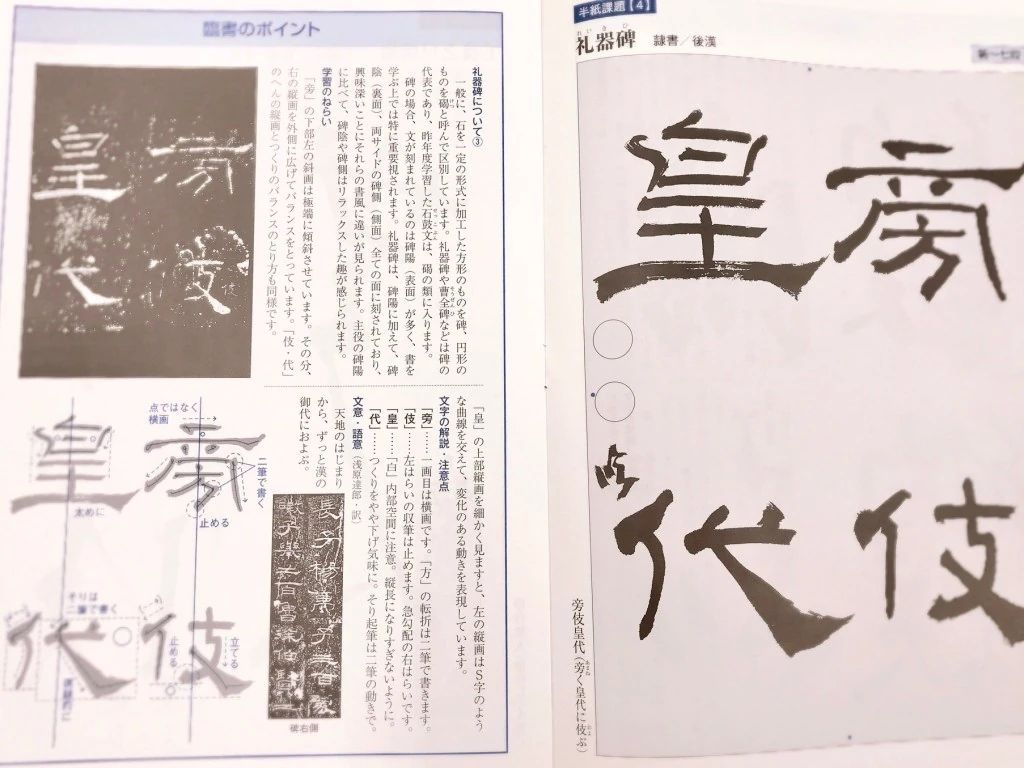 半紙課題【4】
礼器碑 隷書／後漢
れいきひ
旁
伎
皇
代
旁伎皇代（旁く皇代に伎ぶ）
臨書のポイント
礼器碑について③
一般に、石を一定の形式に加工した方形のものを碑、円形の
ものを碣と呼んで区別しています。礼器碑や曹全碑などは碑の
代表であり、昨年度学習した石鼓文は、碣の類に入ります。
碑の場合、文が刻まれているのは碑陽（表面）が多く、書を
学ぶ上では特に重要視されます。礼器碑は、碑陽に加えて、碑
陰（裏面）、両サイドの碑側（側面）全ての面に刻されており、
興味深いことにそれらの書風に違いが見られます。主役の碑陽
に比べて、碑陰や碑側はリラックスした趣が感じられます。
学習のねらい
「旁」の下部左の斜画は極端に傾斜させています。その分、
右の縦画を外側に広げてバランスをとっています。「伎・代」
のへんの縦画とつくりのバランスのとり方も同様です。
旁
伎
皇
代
「皇」の上部縦画を細かく見ますと、左の縦画はS字のよう
な曲線を交えて、変化のある動きを表現しています。
文字の解説・注意点
「旁」……一画目は横画です。「方」の転折は二筆で書きます。
「伎」……左はらいの収筆は止めます。急勾配の右はらいです。
「皇」……「白」内部空間に注意。縦長になりすぎないように。
「代」……つくりをやや下げ気味に。そり起筆は二筆の動きで。
文意・語意（浅原達郎・訳）
天地のはじまり
から、ずっと漢の
御代におよぶ。
碑右側
点ではなく
横画
二筆で書く
止める
太めに
そりは
二筆で書く
止める
立てる
旁
伎
皇
代